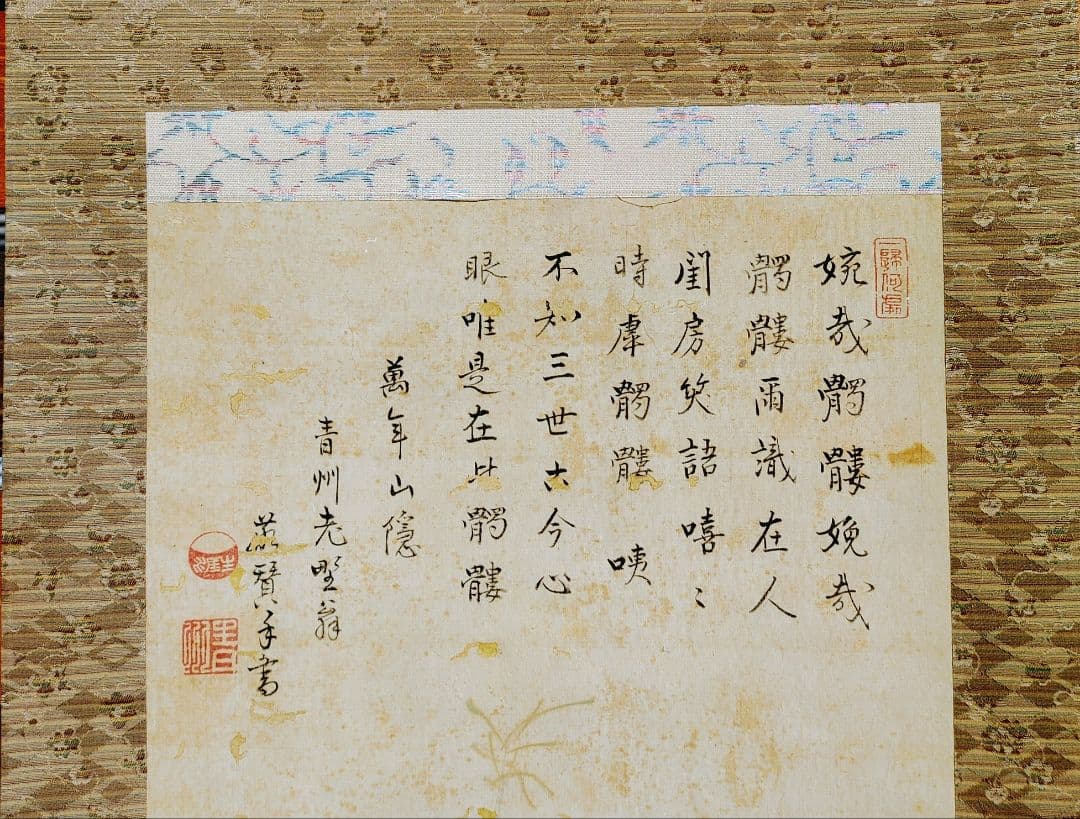 一歸何處
婉哉髑髏娩哉
髑髏爾識在人
閨房笑語嘻〻
時虖髑髏 咦
不知三世古今心
眼唯是在此髑髏
萬年山隱
青州老野翁
手書
青州